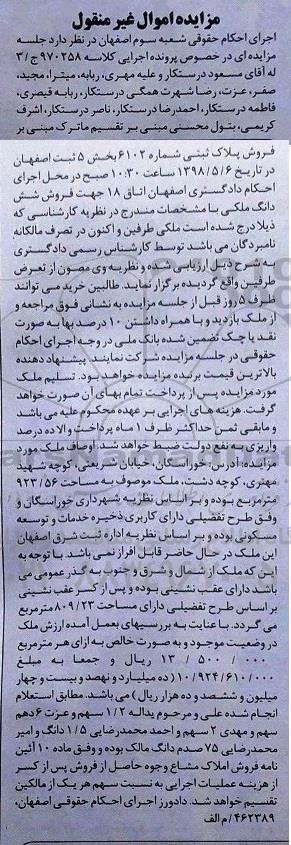 مزایده اموال غیر منقول
اجرای احکام حقوقی شعبه سوم اصفهان در نظر دارد جلسه
مزایده ای در خصوص پرونده اجرایی کلاسه ۹۷۰۲۵۸ ج/۳
له آقای مسعود درستکار و علیه مهری، ربابه، میترا، مجید،
صفر، عزت، رضا شهرت همگی درستکار، ربابه قیصری،
فاطمه درستکار، احمدرضا درستکار، ناصر درستکار، اشرف
کریمی، بتول محسنی مبنی بر تقسیم ماترک مبنی بر
فروش پلاک ثبتی شماره ۶۱۰۲ بخش ۵ ثبت اصفهان
در تاریخ ۱۳۹۸/۵/۶ ساعت ۱۰:۳۰ صبح در محل اجرای
احکام دادگستری اصفهان اتاق ۱۸ جهت فروش شش
دانگ ملکی با مشخصات مندرج در نظریه کارشناسی که
ذیلا درج شده است ملکی طرفین و اکنون در تصرف مالکانه
نامبردگان می باشد توسط کارشناس رسمی دادگستری
به شرح ذیل ارزیابی شده و نظریه وی مصون از تعرض
طرفین واقع گردیده برگزار نماید. طالبین خرید می توانند
ظرف ۵ روز قبل از جلسه مزایده به نشانی فوق مراجعه و
از ملک بازدید و با همراه داشتن ۱۰ درصد بها به صورت
نقد یا چک تضمین شده بانک ملی در وجه اجرای احکام
حقوقی در جلسه مزایده شرکت نمایند. پیشنهاد دهنده
بالاترین قیمت برنده مزایده خواهد بود. تسلیم ملک
مورد مزایده پس از پرداخت تمام بهای آن صورت خواهد
گرفت. هزینه های اجرایی بر عهده محکوم علیه می باشد
و مابقی ثمن حداکثر ظرف ۱ ماه پرداخت والا ده درصد
واریزی به نفع دولت ضبط خواهد شد. اوصاف ملک مورد
مزایده: آدرس: خوراسگان، خیابان شریعتی، کوچه شهید
مهتری، کوچه دشت، ملک موصوف به مساحت ۹۲۳/۵۶
مترمربع بوده و بر اساس نظریه شهرداری خوراسگان و
وفق طرح تفصیلی دارای کاربری ذخیره خدمات و توسعه
مسکونی بوده و بر اساس نظریه اداره ثبت شرق اصفهان
این ملک در حال حاضر قابل افراز نمی باشد. با توجه به
این که ملک از شمال و شرق و جنوب به گذر عمومی می
باشد دارای عقب نشینی بوده و پس از کسر عقب نشینی
بر اساس طرح تفصیلی دارای مساحت ۸۰۹/۲۳ مترمربع
می گردد. با عنایت به بررسیهای بعمل آمده ارزش ملک
در وضعیت موجود و به صورت خالص به ازای هر مترمربع
۱۳/۵۰۰/۰۰۰ ریال و جمعا به مبلغ
۱۰/۹۲۴/۶۱۰/۰۰۰ (ده میلیارد و نهصد و بیست و چهار
میلیون و ششصد و ده هزار ریال) می باشد. مطابق استعلام
انجام شده علی و مرحوم یداله ۱/۲ سهم و عزت ۶ دهم
سهم و مهدی ۲ سهم و احمد محمدرضایی ۱/۵ دانگ و امیر
محمدرضایی ۷۵ صدم دانگ مالک بوده و وفق ماده ۱۰ آئین
نامه فروش املاک مشاع وجوه حاصل از فروش پس از کسر
از هزینه عملیات اجرایی به نسبت سهم هر یک از مالکین
تقسیم خواهد شد. دادورز اجرای احکام حقوقی اصفهان،
۴۶۲۳۸۹/م الف